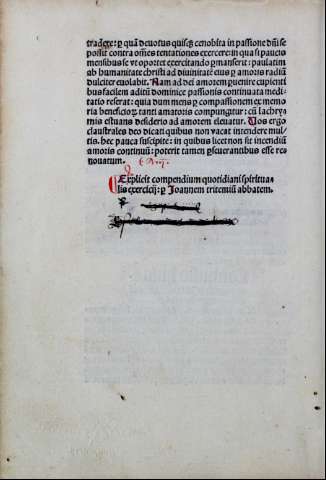 tradere: ꝑ quā deuotus quisqꝫ cenobita in passione dn̄i se
possit contra om̄es tentationes exercere: in qua si paucis
mensibus se vt opoꝛtet exercitando ꝑmanserit: paulatim
ab humanitate christi ad diuinitatē eius ꝑ amoꝛis radiū
dulciter euolabit. Nam ad dei amoꝛem ꝑuenire cupienti
bus facilem aditū dominice passionis continuata medi-
tatio reserat: quia dum mens ꝑ compassionem ex memo
ria beneficioꝝ tanti amatoꝛis compungitur: cū lachry-
mis estuans desiderio ad amoꝛem eleuatur. Uos ergo
claustrales deo dicati quibus non vacat intendere mul-
tis. hec pauca suscipite: in quibus licet non sit incendiū
amoꝛis continuū: poterit tamen ꝑseuerantibus esse re-
nouatum.
Explicit compendium quotidiani spiritua-
lis exercicij: ꝑ Joannem tritemiū abbatem.